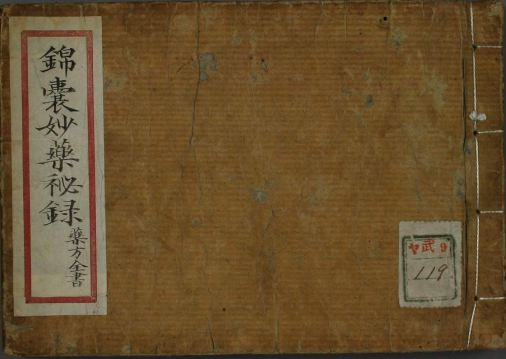 錦嚢妙藥秘録
藥方全書
ヤ武9
119